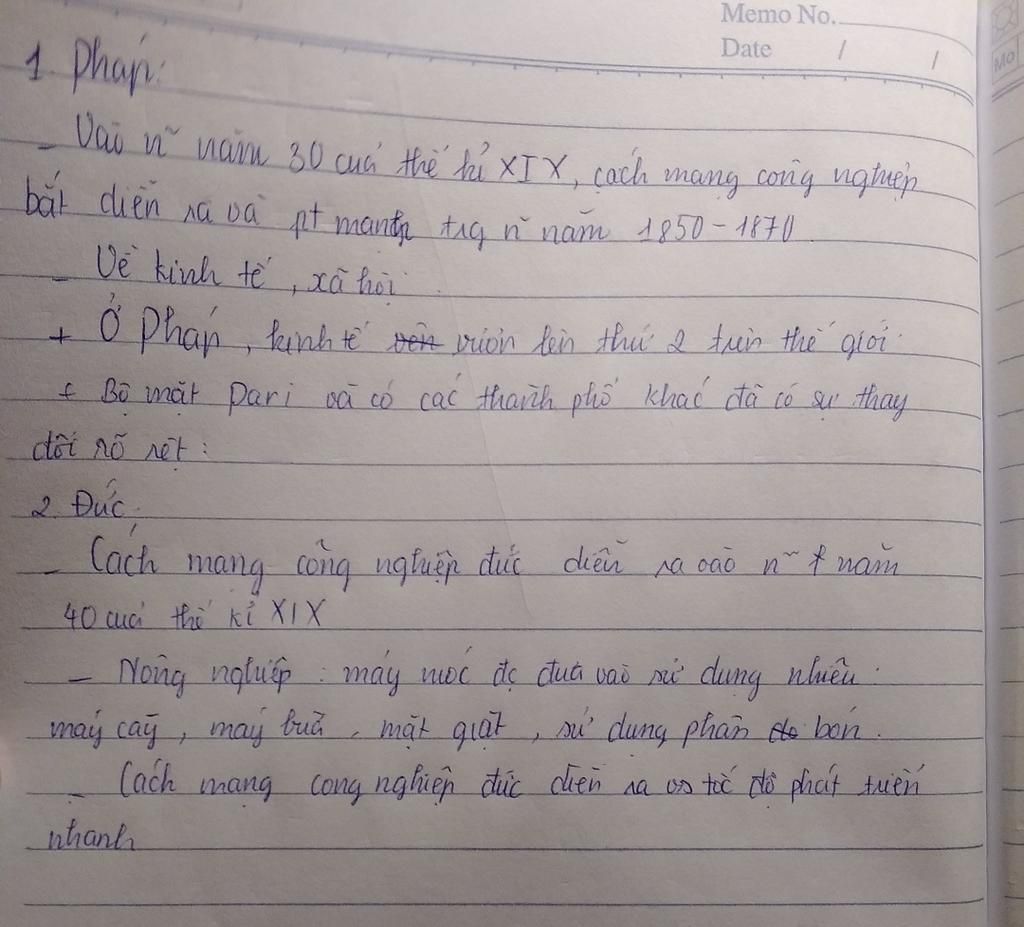 Memo No.
Date / /
Mo
1. Pháp:
- Vào n~ năm 30 của thế kỉ XIX, cách mạng công nghiệp
bắt diễn ra và pt mạnh trg n~ năm 1850 - 1870
- Về kinh tế, xã hội.
+ Ở Pháp, kinh tế vươn lên thứ 2 trên thế giới.
+ Bộ mặt Pari và có các thành phố khác đã có sự thay
đổi rõ rệt :
2. Đức.
- Cách mạng công nghiệp đức diễn ra vào n~ năm
40 của thế kỉ XIX
- Nông nghiệp : máy móc đc đưa vào sử dụng nhiều :
máy cày, máy bừa, mặt giặt, sử dụng phân bón.
- Cách mạng công nghiệp đức diễn ra vs tốc độ phát triển
nhanh